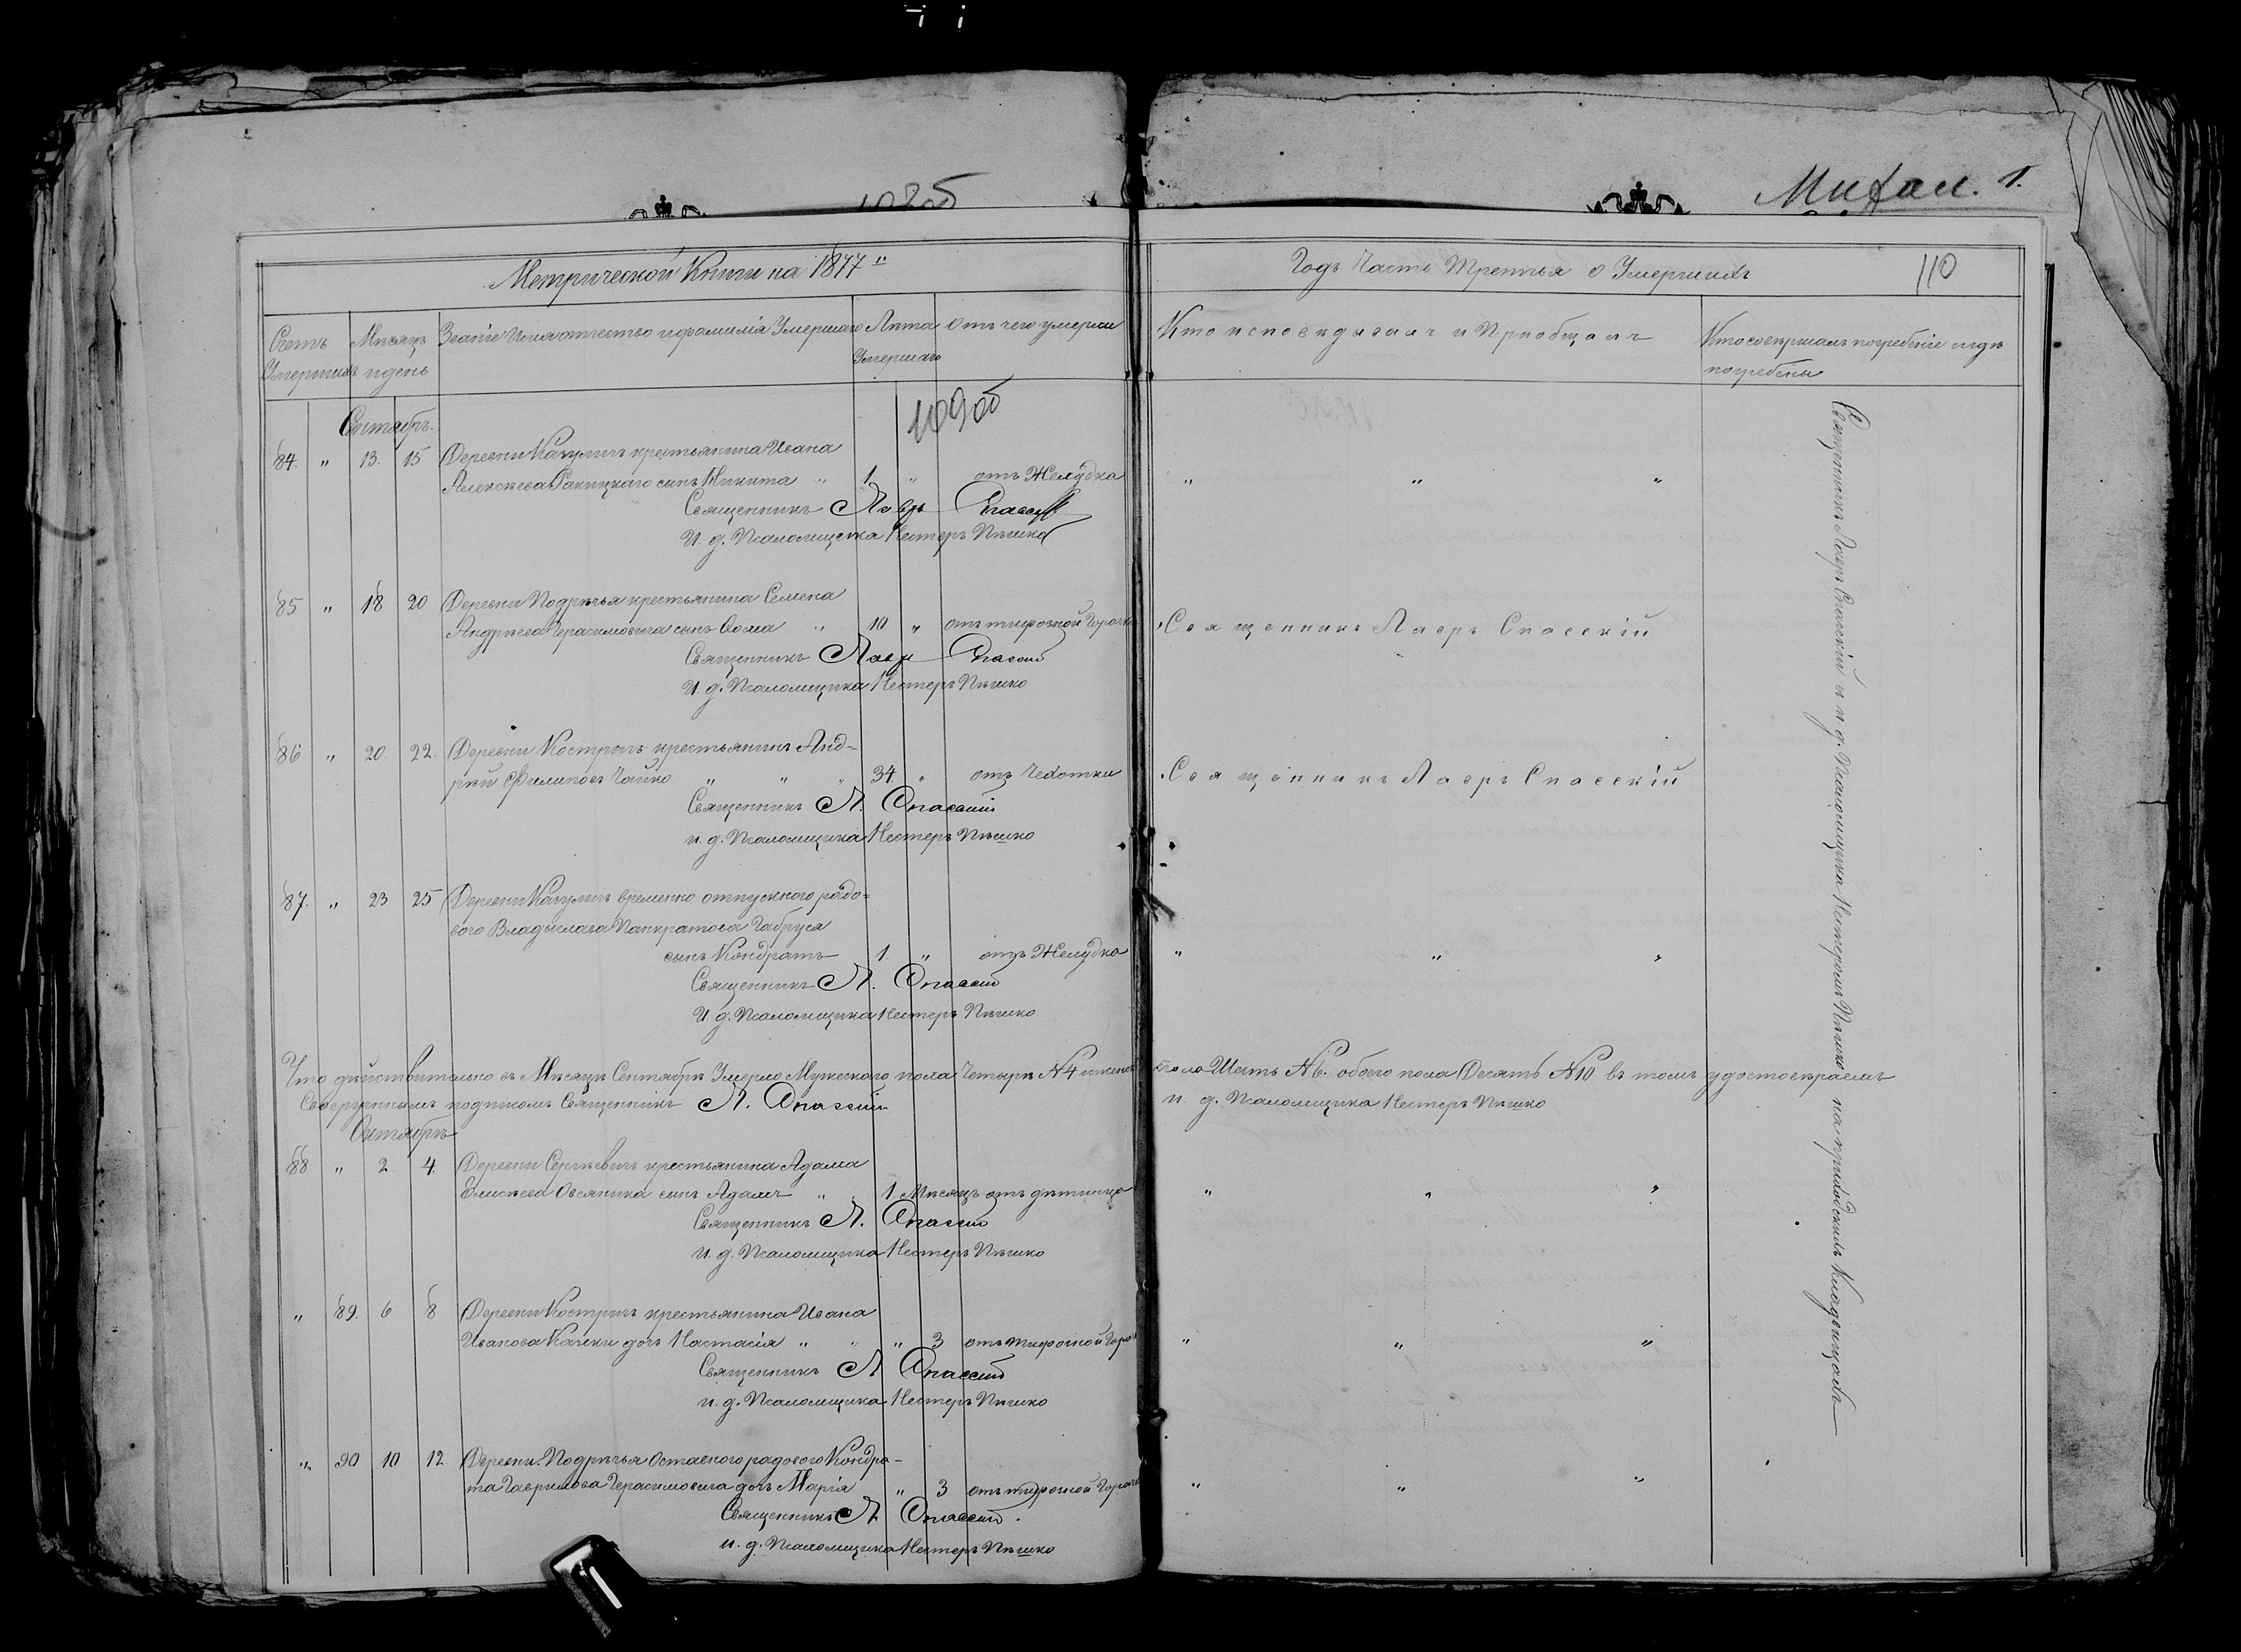 Михал. 1.
Метрической Книги на 1877"
Годъ Часть Третья о Умершихъ
110
Счетъ Умершихъ
Мѣсяцъ и день
Званіе Имя отчество и фамилія Умершаго
Лѣта Умершаго
Отъ чего умерли
Кто исповѣдывалъ и Пріобщалъ
Кто совершалъ погребеніе и гдѣ погребены
109об
Сентябрь.
84. " 13. 15 Деревни Качуличъ крестьянина Ивана
Алексѣева Ракицкаго сынъ Никита " 1 " отъ Желудка " " "
Священникъ Лавръ Спасскій
И. д. Псаломщика Нестеръ Пѣшко
85 " 18 20 Деревни Подрѣчья крестьянина Семена
Андрѣева Герасимовича сынъ Ѳома " 10 " отъ тифозной Горячки Священникъ Лавръ Спасскій
Священникъ Лавръ Спасскій
И. д. Псаломщика Нестеръ Пѣшко
86 " 20. 22. Деревни Костричъ крестьянинъ Анд-
рей Филиповъ Чайко " " " 34. " отъ Чехотки Священникъ Лавръ Спасскій
Священникъ Л. Спасскій
и. д. Псаломщика Нестеръ Пѣшко
87. " 23 25 Деревни Качуличъ временно отпускного рядо-
вого Владыслава Панкратова Габруся
сынъ Кондратъ 1. " отъ Желудка " " "
Священникъ Л. Спасскій
И д. Псаломщика Нестеръ Пѣшко
Что дѣйствительно въ Мѣсяцѣ Сентябрѣ Умерло Мужескаго пола Четыре №4 и женскаго пола Шесть №6. обоего пола Десять №10 въ томъ удостовѣряемъ
Священникъ Л. Спасскій и. д. Псаломщика Нестеръ Пѣшко
Октябрь
88 " 2. 4 Деревни Сергѣевичъ крестьянина Адама
Елисѣева Овсяника сынъ Адамъ " " 1. Мѣсяцъ отъ дѣтинца " " "
Священникъ Л. Спасскій
и. д. Псаломщика Нестеръ Пѣшко
" 89. 6 8 Деревни Костричъ крестьянина Ивана
Иванова дочь Настасія " " " 3 отъ тифозной Горячки " " "
Священникъ Л Спасскій
и. д. Псаломщика Нестеръ Пѣшко
" 90 10 12. Деревни Подрѣчья Отставного рядового Кондра-
та Гаврилова Герасимовича дочь Марія " 3 отъ тифозной Горячки " " "
Священникъ Л Спасскій.
и. д. Псаломщика Нестеръ Пѣшко
Священникъ Лавръ Спасскій съ и. д. Псаломщика Нестеромъ Пѣшко на приходскихъ Кладбищахъ